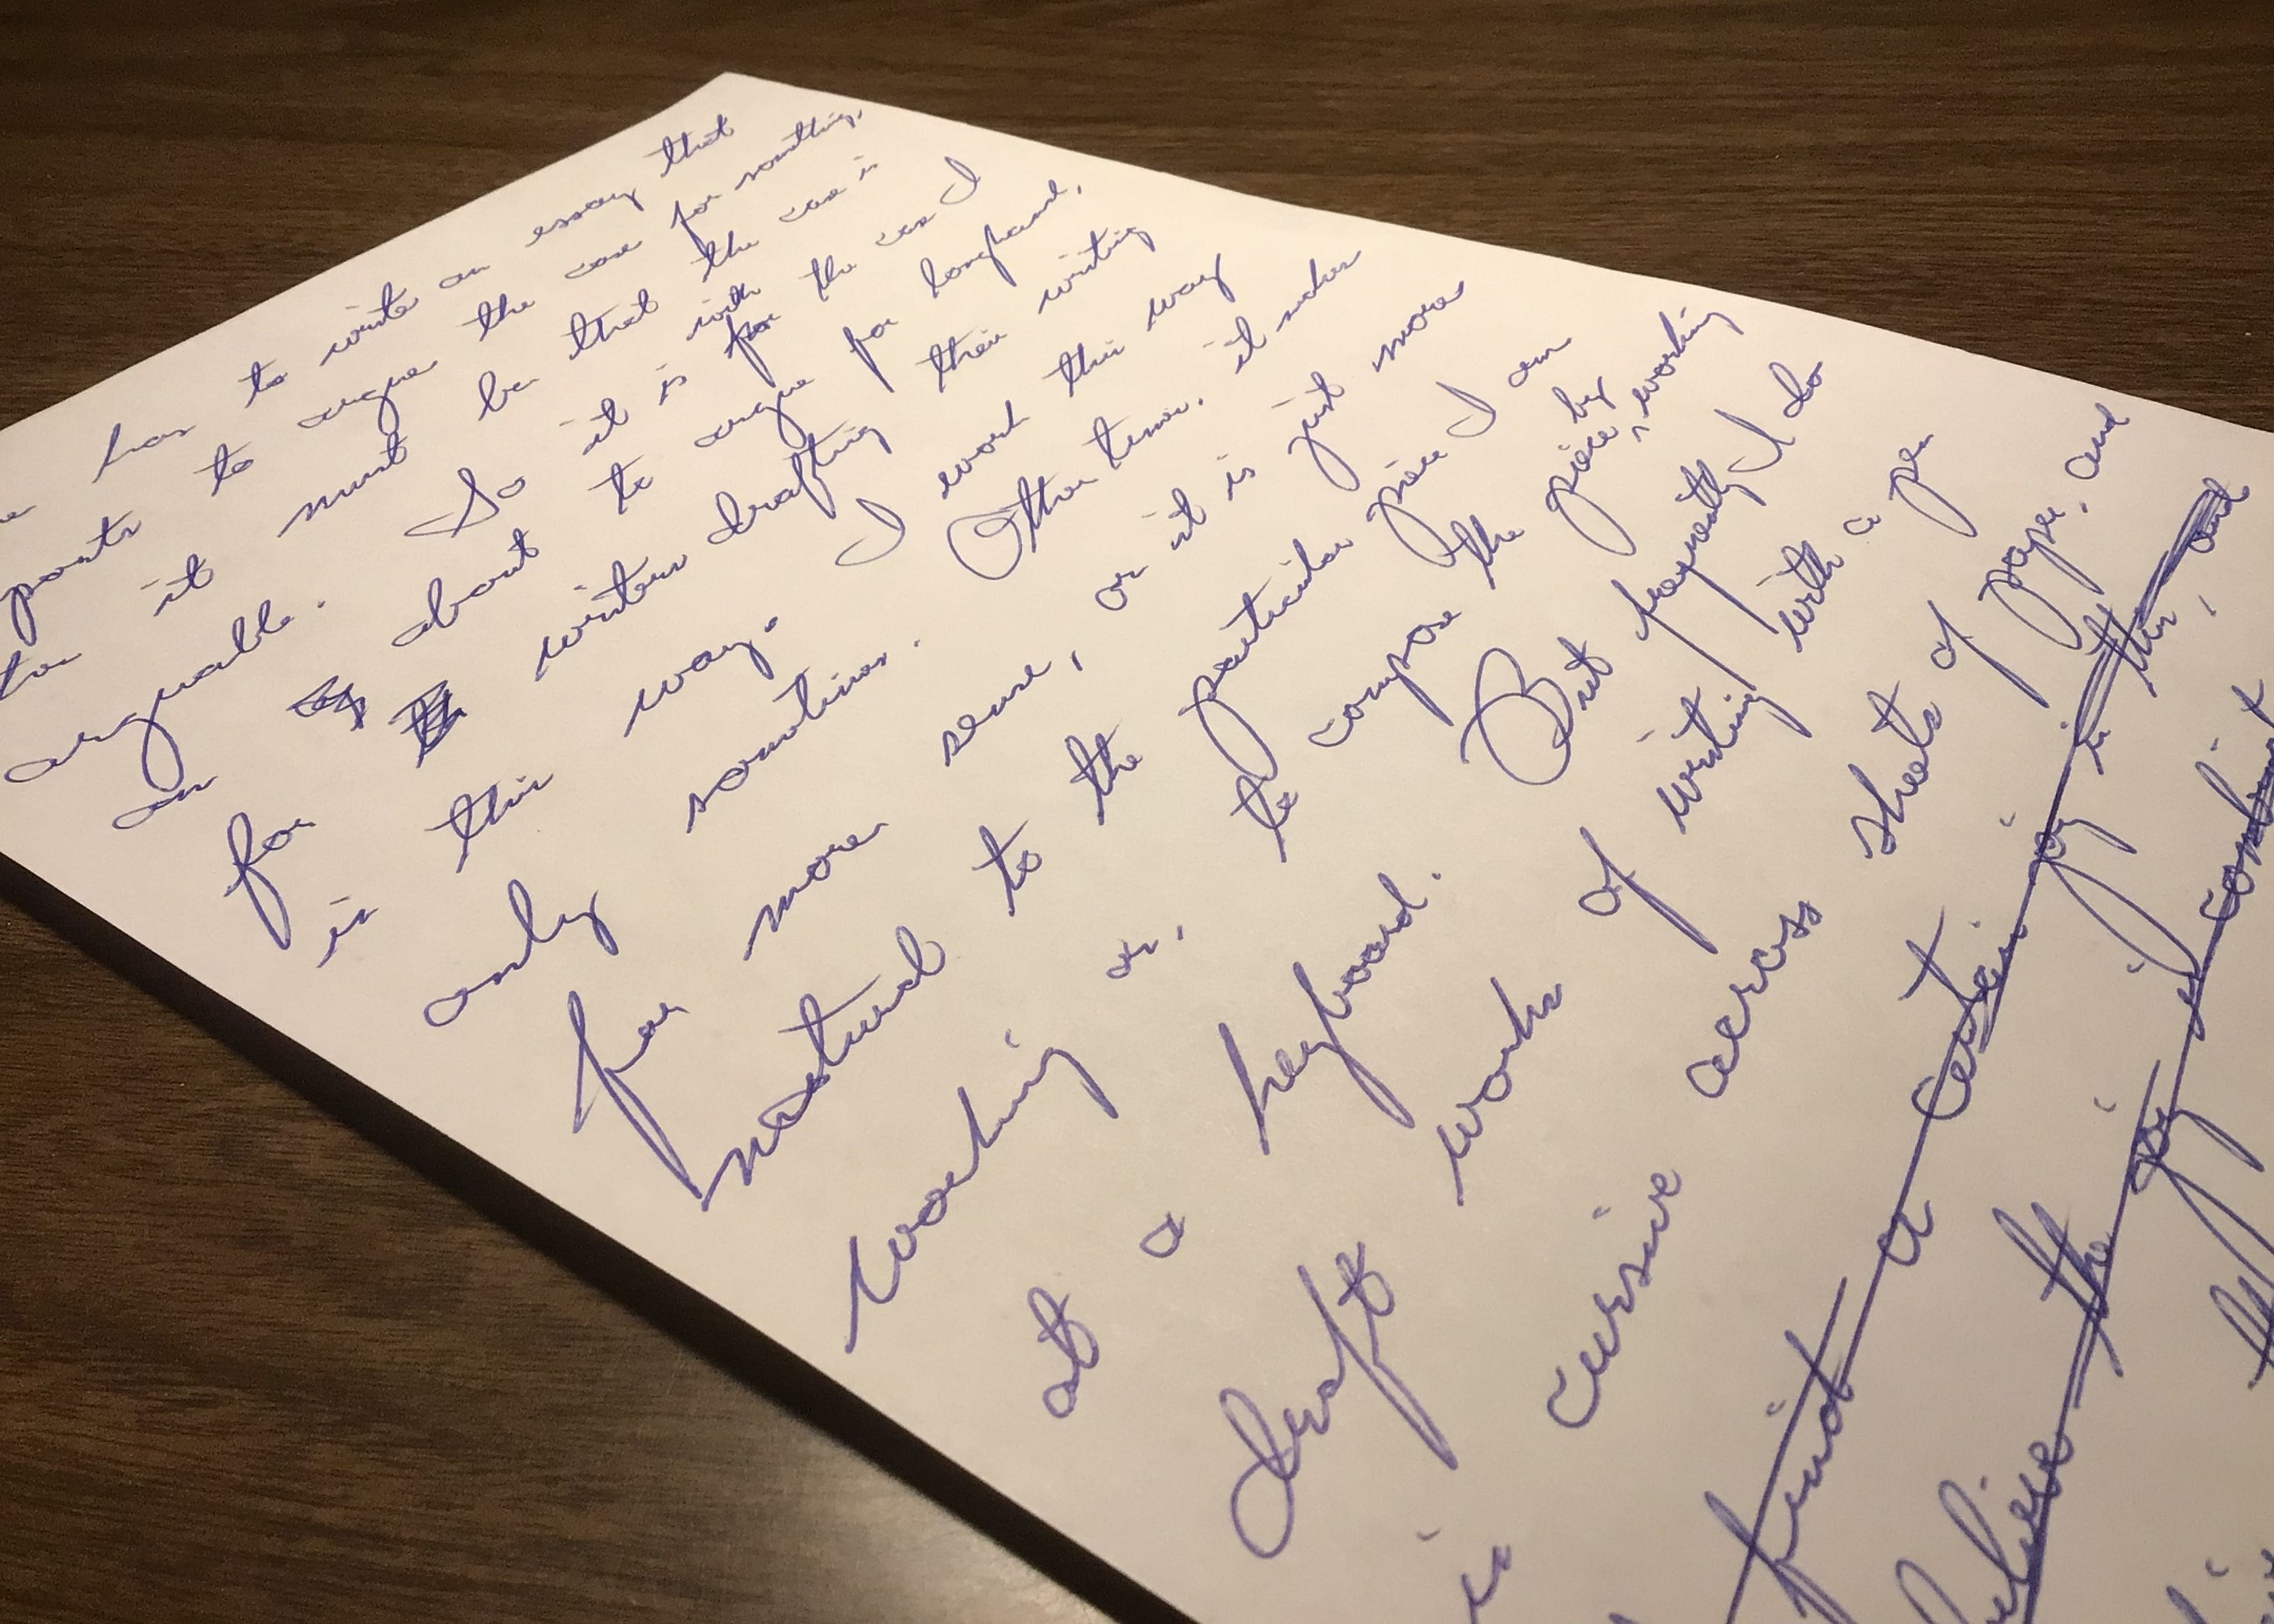 has to write an essay that
ports to argue the case for something,
it must be that the case is
arguable. So it is with the case I
am about to argue for longhand,
for writers drafting their writing
in this way. I work this way
only sometimes. Other times, it makes
far more sense, or it is just more
natural to the particular piece I am
working on, to compose the piece by working
at a keyboard. But frequently I do
draft works of writing with a pen
in cursive across sheets of paper, and
find a certain joy in this, and
believe the joy is